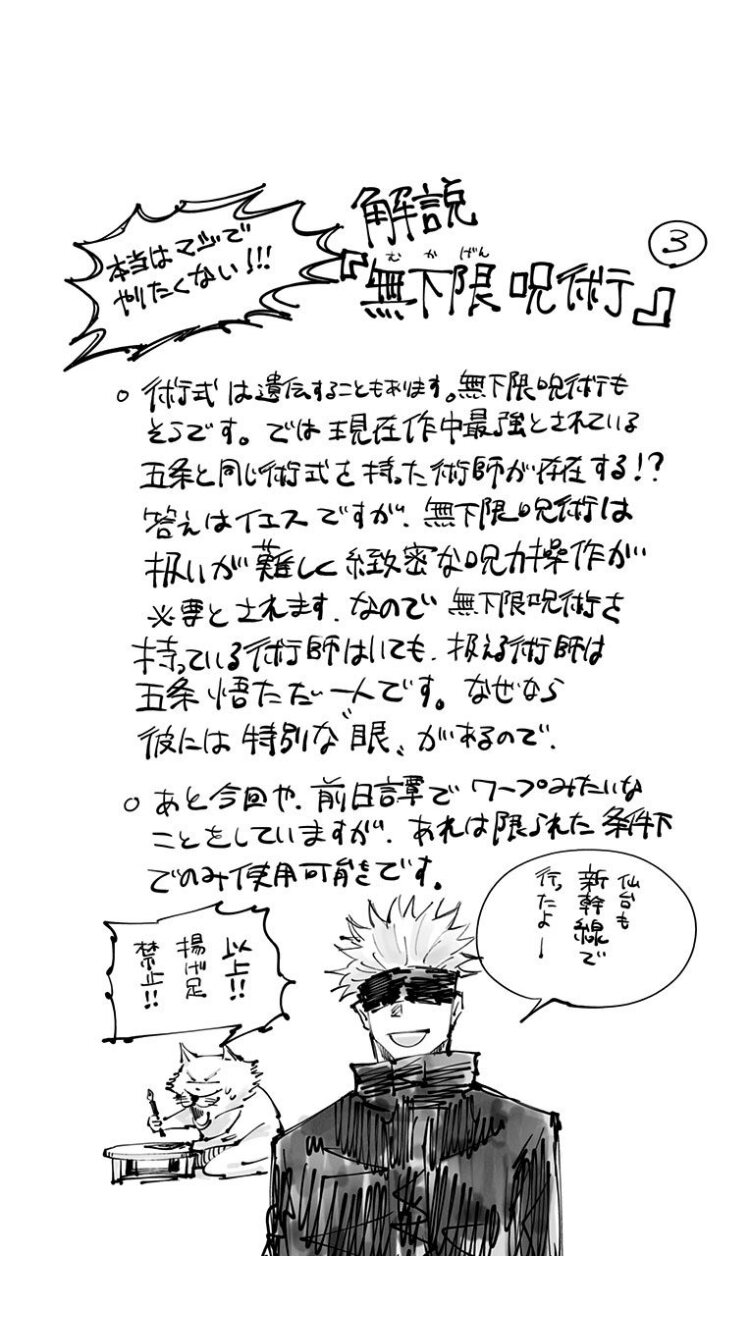 解説
『無下限呪術』
むかげん
③
本当はマジで
やりたくない!!!
○ 術式は遺伝することもあります。無下限呪術も
そうです。では現在作中最強とされている
五条と同じ術式を持った術師が存在する!?
答えはイエスですが、無下限呪術は
扱いが難しく緻密な呪力操作が
必要とされます。なので無下限呪術を
持っている術師はいても、扱える術師は
五条悟ただ一人です。なぜなら
彼には特別な〝眼〟があるので。
○ あと今回や、前日譚でワープみたいな
ことをしていますが、あれは限られた条件下
でのみ使用可能です。
仙台も
新幹線で
行ったよー
以上!!
揚げ足
禁止!!